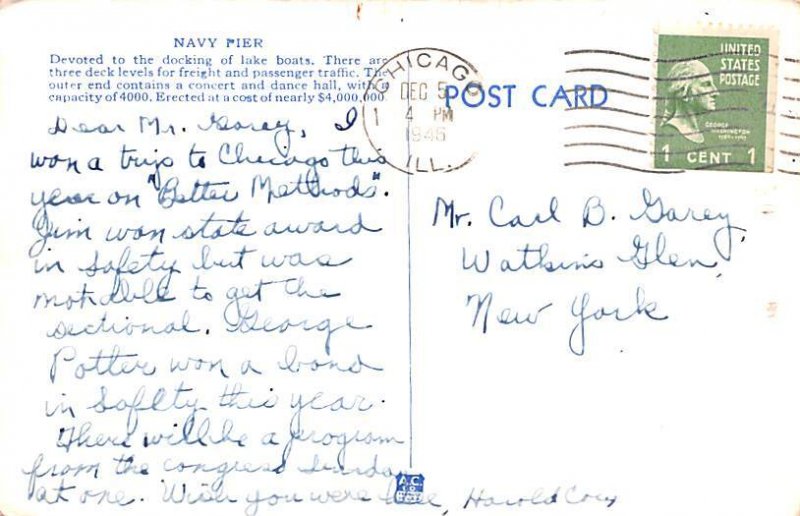 NAVY PIER
Devoted to the docking of lake boats. There are
three deck levels for freight and passenger traffic. The
outer end contains a concert and dance hall, with a
capacity of 4000. Erected at a cost of nearly $4,000,000.
Dear Mr. Garey, I
won a trip to Chicago this
year on "Better Methods".
Jim won state award
in safety but was
not able to get the
sectional. George
Potter won a bond
in safety this year.
There will be a program
from the congress Sunday
at one. Wish you were here, Harold
CHICAGO
DEC 5
4 PM
1945
ILL.
POST CARD
UNITED
STATES
POSTAGE
GEORGE
WASHINGTON
1 CENT 1
Mr. Carl B. Garey
Watkins Glen,
New York
A.C.